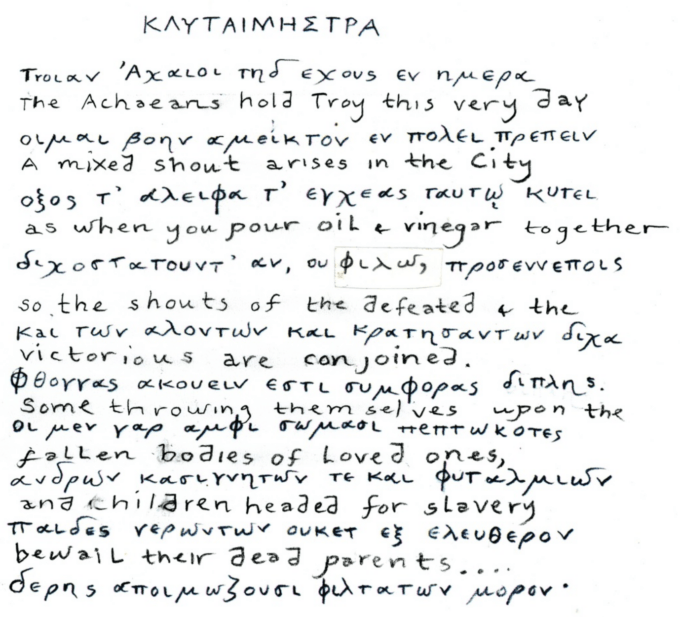 ΚΛΥΤΑΙΜΗΣΤΡΑ
Τροιαν Ἀχαιοι τηδ εχους εν ημερα
The Achaeans hold Troy this very day
οιμαι βοην αμεικτον εν πολει πρεπειν
A mixed shout arises in the City
οξος τ' αλειφα τ' εγχεας ταυτῳ κυτει
as when you pour oil & vinegar together
διχοστατουντ' αν, ου φιλως, προσεννεποις
so the shouts of the defeated & the
και των αλοντων και κρατησαντων διχα
victorious are conjoined.
Φθογγας ακουειν εστι συμφορας διπλης.
Some throwing themselves upon the
οι μεν γαρ αμφι σωμασι πεπτωκοτες
fallen bodies of Loved ones,
ανδρων κασιγνητων τε και φυταλμιων
and children headed for slavery
παιδες γερωντων ουκετ εξ ελευθερον
bewail their dead parents....
δερης αποιμωζουσι φιλτατων μορον·